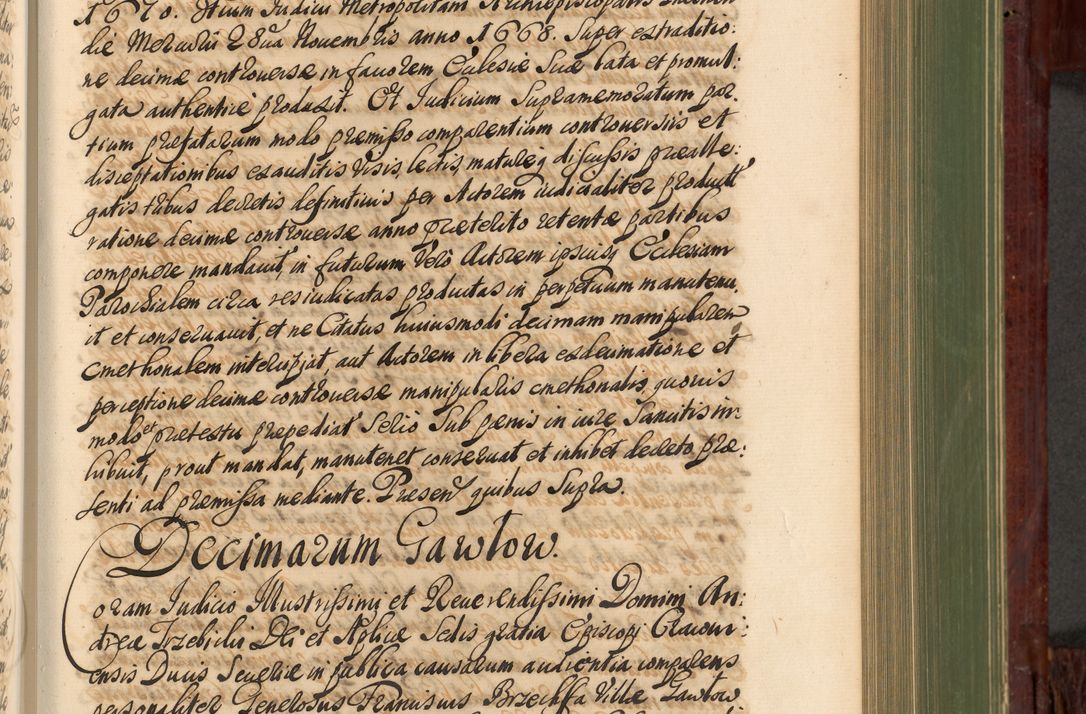 1670. Actum Judicii Metropolitani Archiepiscopalis
die Mercurii 28ua Nouembris anno 1668. Super extraditio:
ne decimæ controuersæ in fauorem Eclesiæ Suæ lata et promul:
gata authentice produxit. Et Judicium Supramemoratum par:
tium præfatarum modo præmisso comparentium controuersiis et
disceptationibus exauditis visis, lectis, matureq discussis præalle:
gatis tribus decretis definitiuis per Actorem iudicialiter product
ratione decimæ controuersæ anno præterito retentæ partibus
componere mandauit, in futurum Vero Actorem ipsiusq Ecclesiam
Parochialem circa res iudicatas productas in perpetuum manutenu,
it et conseruauit, et ne Citatus huiusmodi decimam manipularem
cmethonalem intercipiat, aut Actorem in libera exdecimatione et
perceptione decimæ controuersæ manipularis cmethonalis quouis
modo et prætextu præpediat Serio Sub pænis in iure Sancitis in:
hibuit, prout mandat, manutenet conseruat et inhibet decreto præ:
senti ad præmissa mediante. Presen quibus Supra.
Decimarum Gawlow.
Coram Judicio Illustrissimi et Reuerendissimi Domini An:
dreæ Trzebicki Dei et Aplicæ Sedis gratia Episcopi Cracoui:
ensis Ducis Seueriæ in publica causarum audientia comparens
personaliter Generosus Franciscus Brzechffa Villæ Gawlow